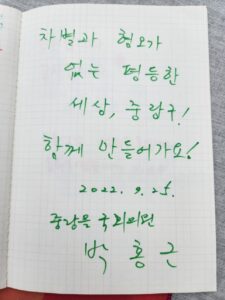 차별과 혐오가
없는 평등한
세상, 중랑구!
함께 만들어가요!
2022. 9. 25.
중랑을 국회의원
박 홍 근